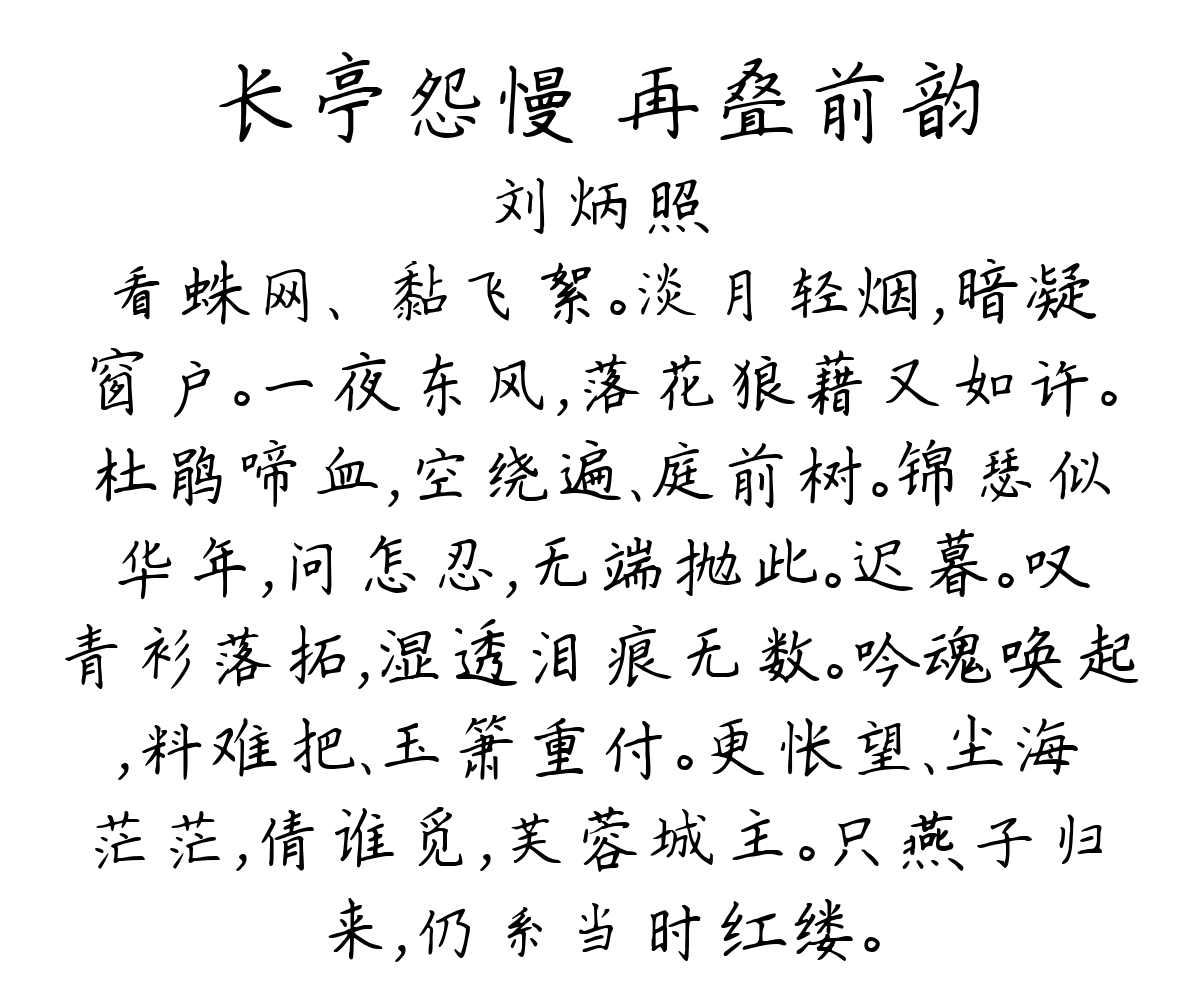 长亭怨慢 再叠前韵
刘炳照
看蛛网、黏飞絮。淡月轻烟,暗凝
窗户。一夜东风,落花狼藉又如许。
杜鹃啼血,空绕遍、庭前树。锦瑟似
华年,问怎忍,无端抛此。迟暮。叹
青衫落拓,湿透泪痕无数。吟魂唤起
,料难把、玉箫重付。更怅望、尘海
茫茫,倩谁觅,芙蓉城主。只燕子归
来,仍系当时红缕。